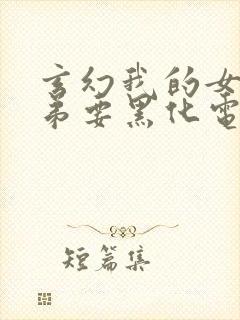 玄幻我的女
弟要黑化电
短篇集